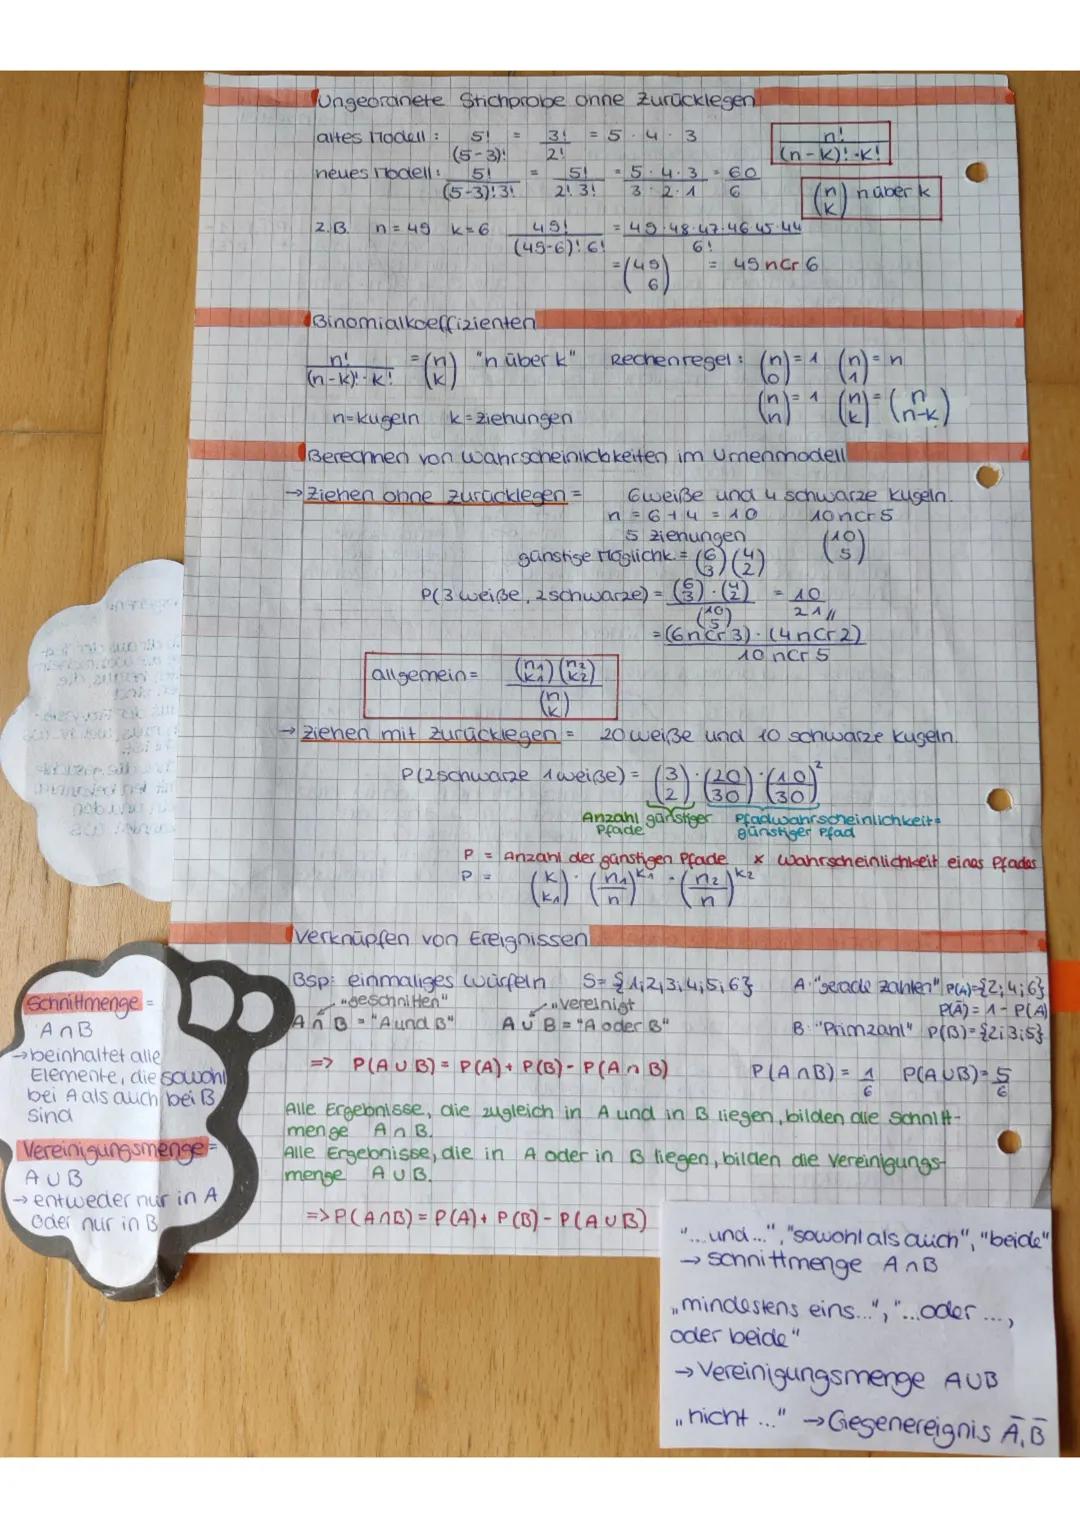 Ungeordnete Stichprobe ohne Zurücklegen
altes Modell: 5!/(5-3)! = 3!/2! = 5·4·3
n!/((n-k)!·k!)
neues Modell: 5!/((5-3)!3!) = 5!/(2!·3!) = (5·4·3)/(3·2·1) = 60/6
(n k) n über k
z.B. n=49 k=6 49!/((49-6)!·6!) = (49·48·47·46·45·44)/6!
= (49 6) = 49 nCr 6
Binomialkoeffizienten
n!/((n-k)!·k!) = (n k) "n über k" Rechenregel: (n 0) = 1 (n 1) = n
(n n) = 1 (n k) = (n n-k)
n=Kugeln k=Ziehungen
Berechnen von Wahrscheinlichkeiten im Urnenmodell
→ Ziehen ohne zurücklegen = 6 weiße und 4 schwarze Kugeln.
n = 6+4 = 10 10 ncr 5
5 Ziehungen (10 5)
günstige Möglichk. = (6 3)(4 2)
P(3 weiße, 2 schwarze) = ((6 3)·(4 2))/(10 5) = 10/21
= ((6 nCr 3)·(4 nCr 2))/(10 nCr 5)
allgemein = ((n1 k1)(n2 k2))/(n k)
→ Ziehen mit zurücklegen = 20 weiße und 10 schwarze Kugeln.
P(2 schwarze 1 weiße) = (3 2)·(20/30)·(10/30)²
Anzahl günstiger Pfadwahrscheinlichkeit=
Pfade günstiger Pfad
P = Anzahl der günstigen Pfade x Wahrscheinlichkeit eines Pfades
P = (k k1)·(n1/n)^k1·(n2/n)^k2
Verknüpfen von Ereignissen
Bsp: einmaliges Würfeln S={1;2;3;4;5;6} A:"gerade Zahlen" P(A)={2;4;6}
"geschnitten" "vereinigt P(Ā) = 1-P(A)
A∩B = "A und B" A∪B = "A oder B" B: "Primzahl" P(B)={2;3;5}
=> P(A∪B) = P(A)+P(B)-P(A∩B) P(A∩B) = 1/6 P(A∪B) = 5/6
Alle Ergebnisse, die zugleich in A und in B liegen, bilden die Schnitt-
menge A∩B.
Alle Ergebnisse, die in A oder in B liegen, bilden die Vereinigungs-
menge A∪B.
=> P(A∩B) = P(A)+P(B)-P(A∪B)
Schnittmenge =
A∩B
→ beinhaltet alle
Elemente, die sowohl
bei A als auch bei B
sind
Vereinigungsmenge =
A∪B
→ entweder nur in A
oder nur in B
"...und...", "sowohl als auch", "beide"
→ Schnittmenge A∩B
„mindestens eins...", "...oder...,
oder beide"
→ Vereinigungsmenge A∪B
„nicht..." → Gegenereignis Ā, B̄